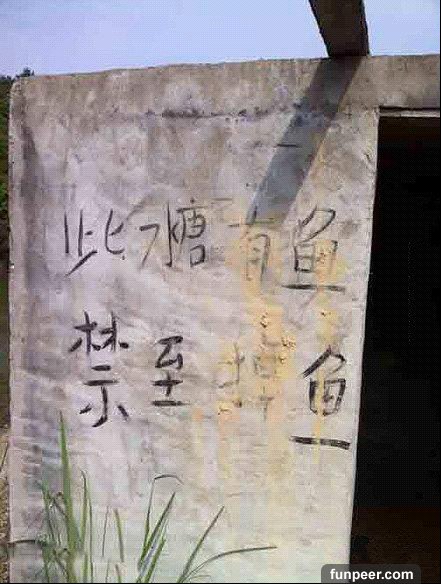 此溏有鱼
禁至捕鱼
funpeer.com